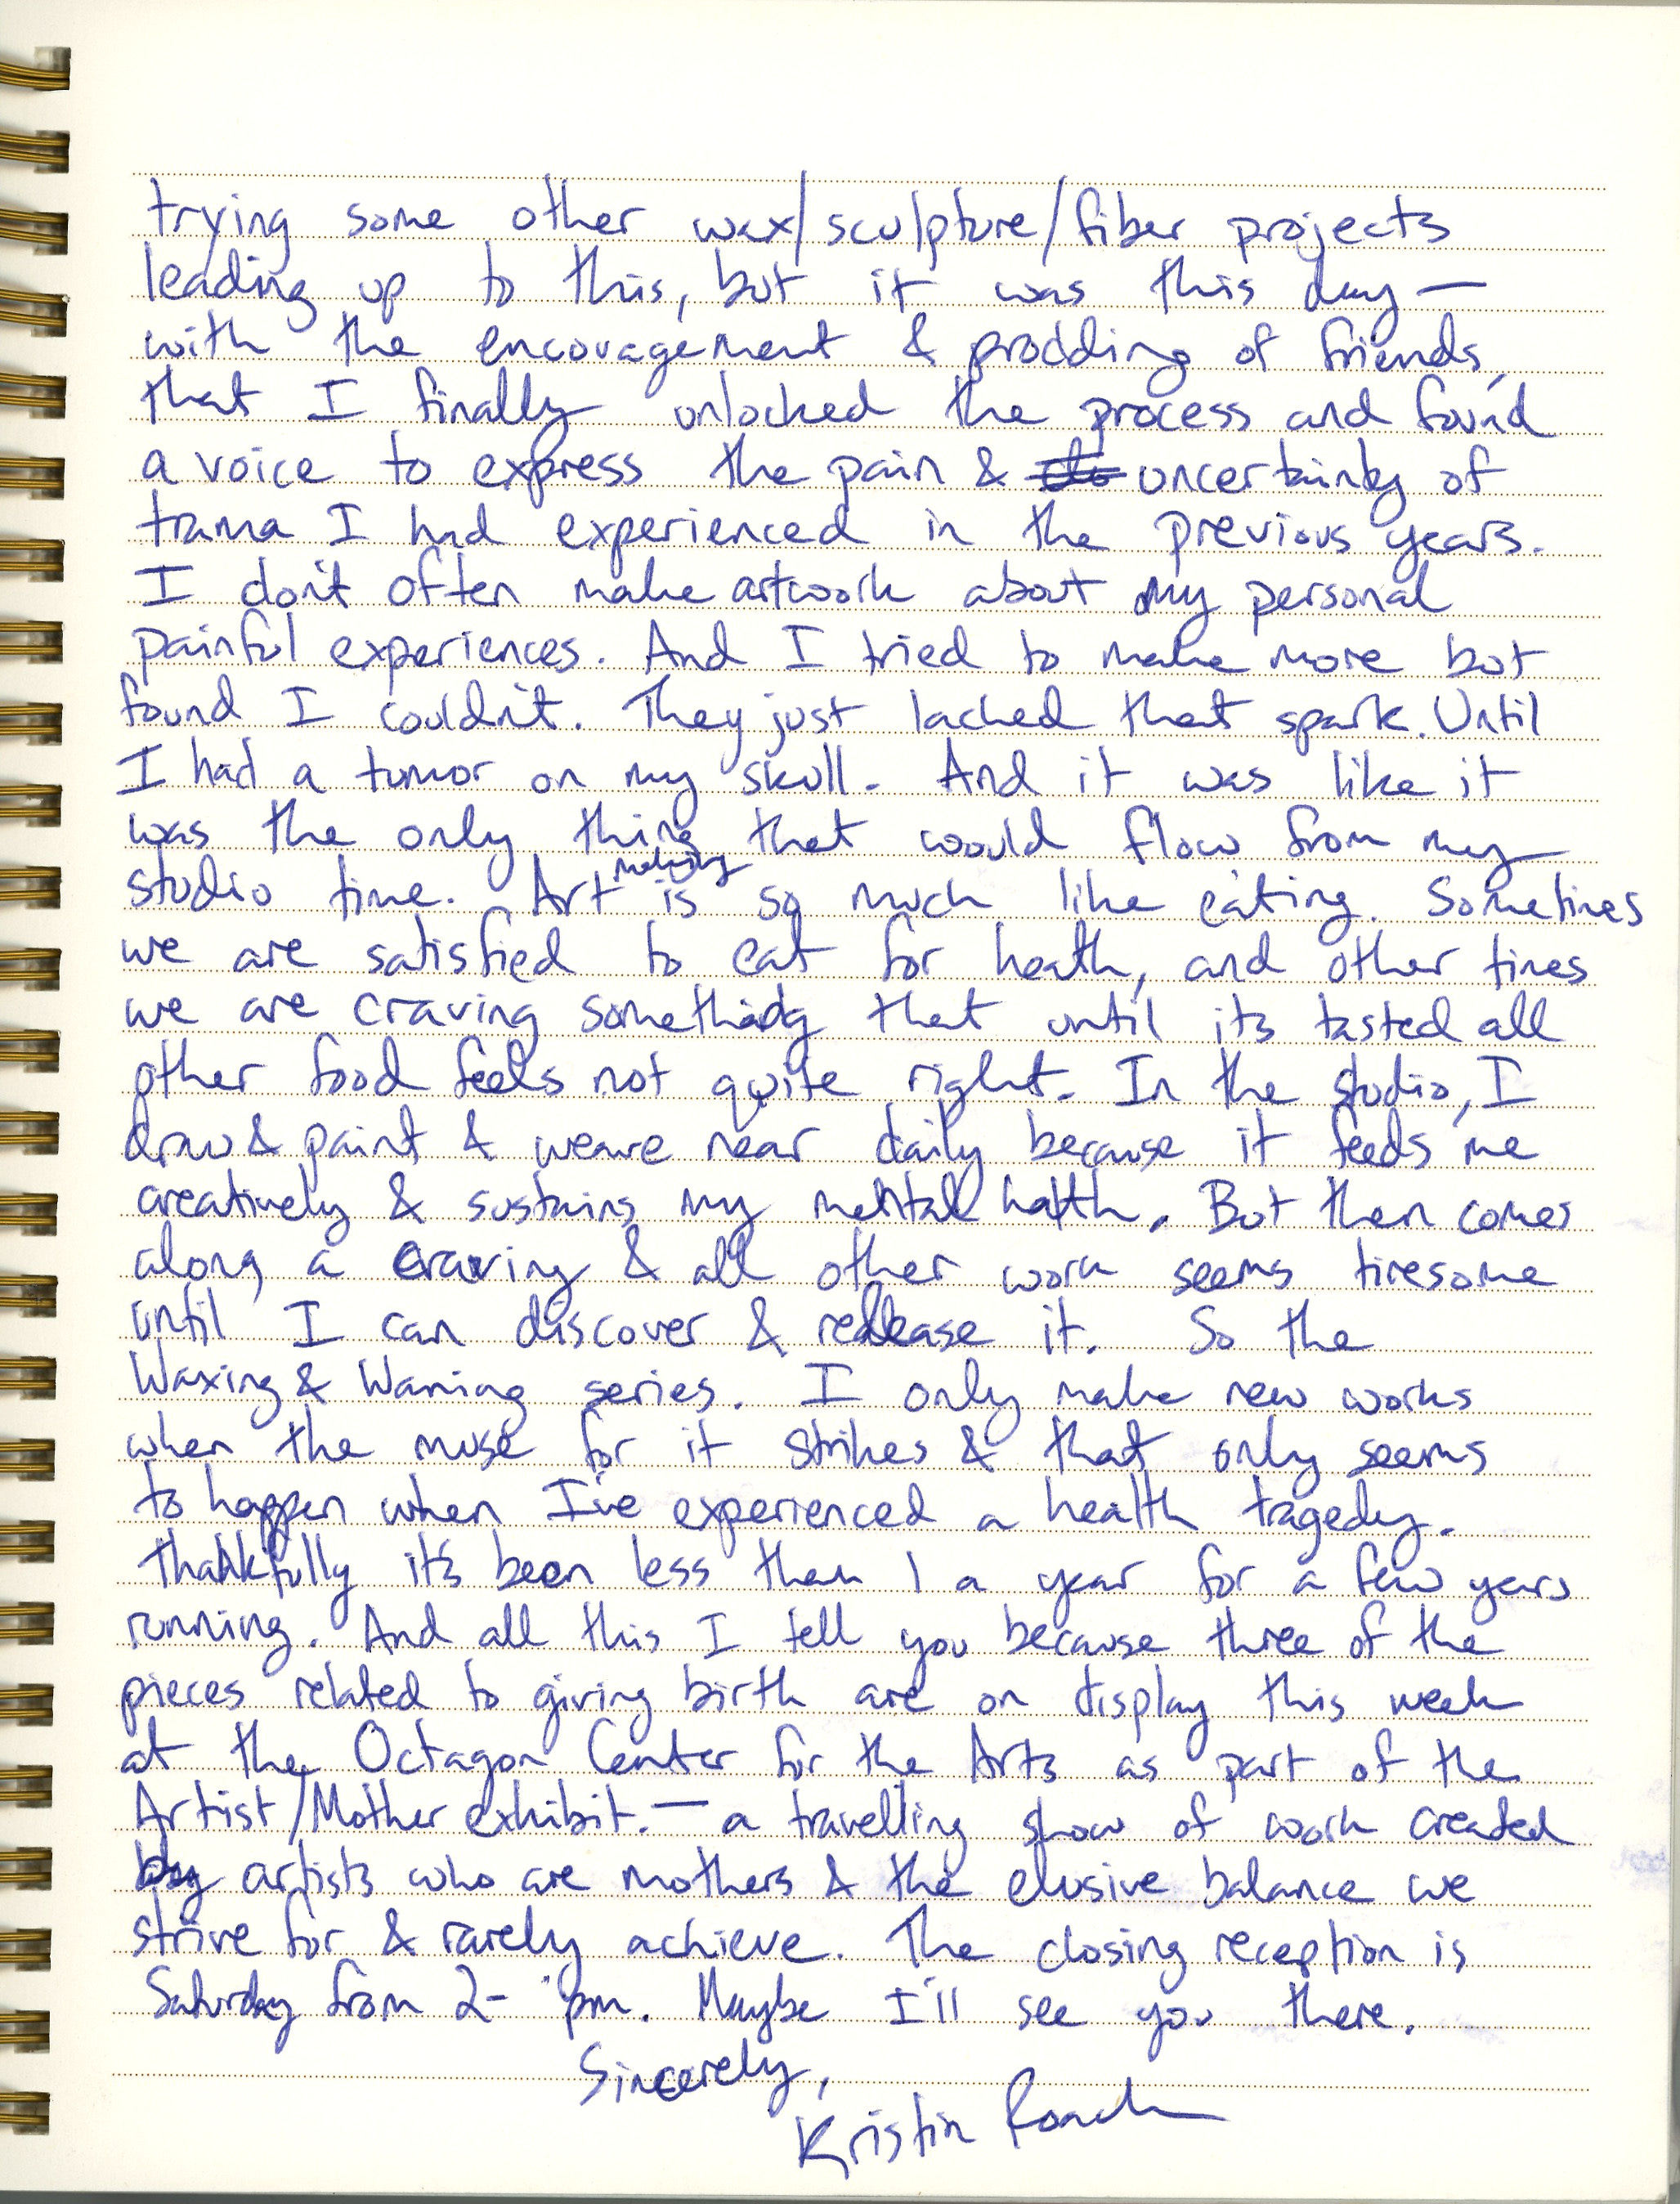 trying some other wax/sculpture/fiber projects
leading up to this, but it was this day —
with the encouragement & prodding of friends,
that I finally unlocked the process and found
a voice to express the pain & uncertainty of
trama I had experienced in the previous years.
I don't often make artwork about my personal
painful experiences. And I tried to make more but
found I couldn't. They just lacked that spark. Until
I had a tumor on my skull. And it was like it
was the only thing that would flow from my
studio time. Art making is so much like eating. Sometimes
we are satisfied to eat for heath, and other times
we are craving something that until its tasted all
other food feels not quite right. In the studio, I
draw & paint & weave near daily because it feeds me
creatively & sustains my mental halth. But then comes
along a craving & all other work seems tiresome
until I can discover & release it. So the
Waxing & Waning series. I only make new works
when the muse for it strikes & that only seems
to happen when I've experienced a health tragedy.
Thankfully it's been less than 1 a year for a few years
running. And all this I tell you because three of the
pieces related to giving birth are on display this week
at the Octagon Center for the Arts as part of the
Artist/Mother exhibit. — a travelling show of work created
by artists who are mothers & the elusive balance we
strive for & rarely achieve. The closing reception is
Saturday from 2- pm. Maybe I'll see you there.
Sincerely,
Kristin Roach